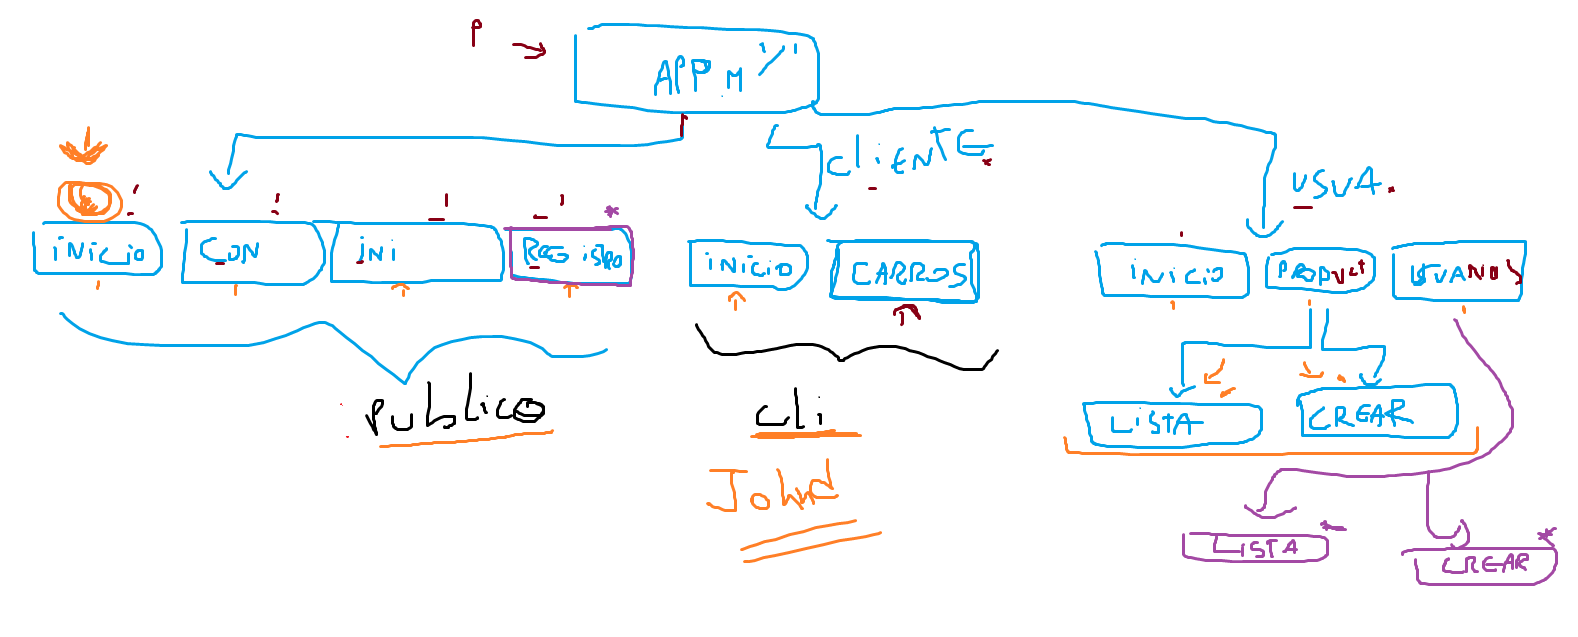 P
APP.M
CLIENTE
USUA.
INICIO
CON
INI
REGISTRO
INICIO
CARROS
INICIO
PRODUCT
USUARIOS
PUBLICO
CLI
LISTA
CREAR
John
LISTA
CREAR